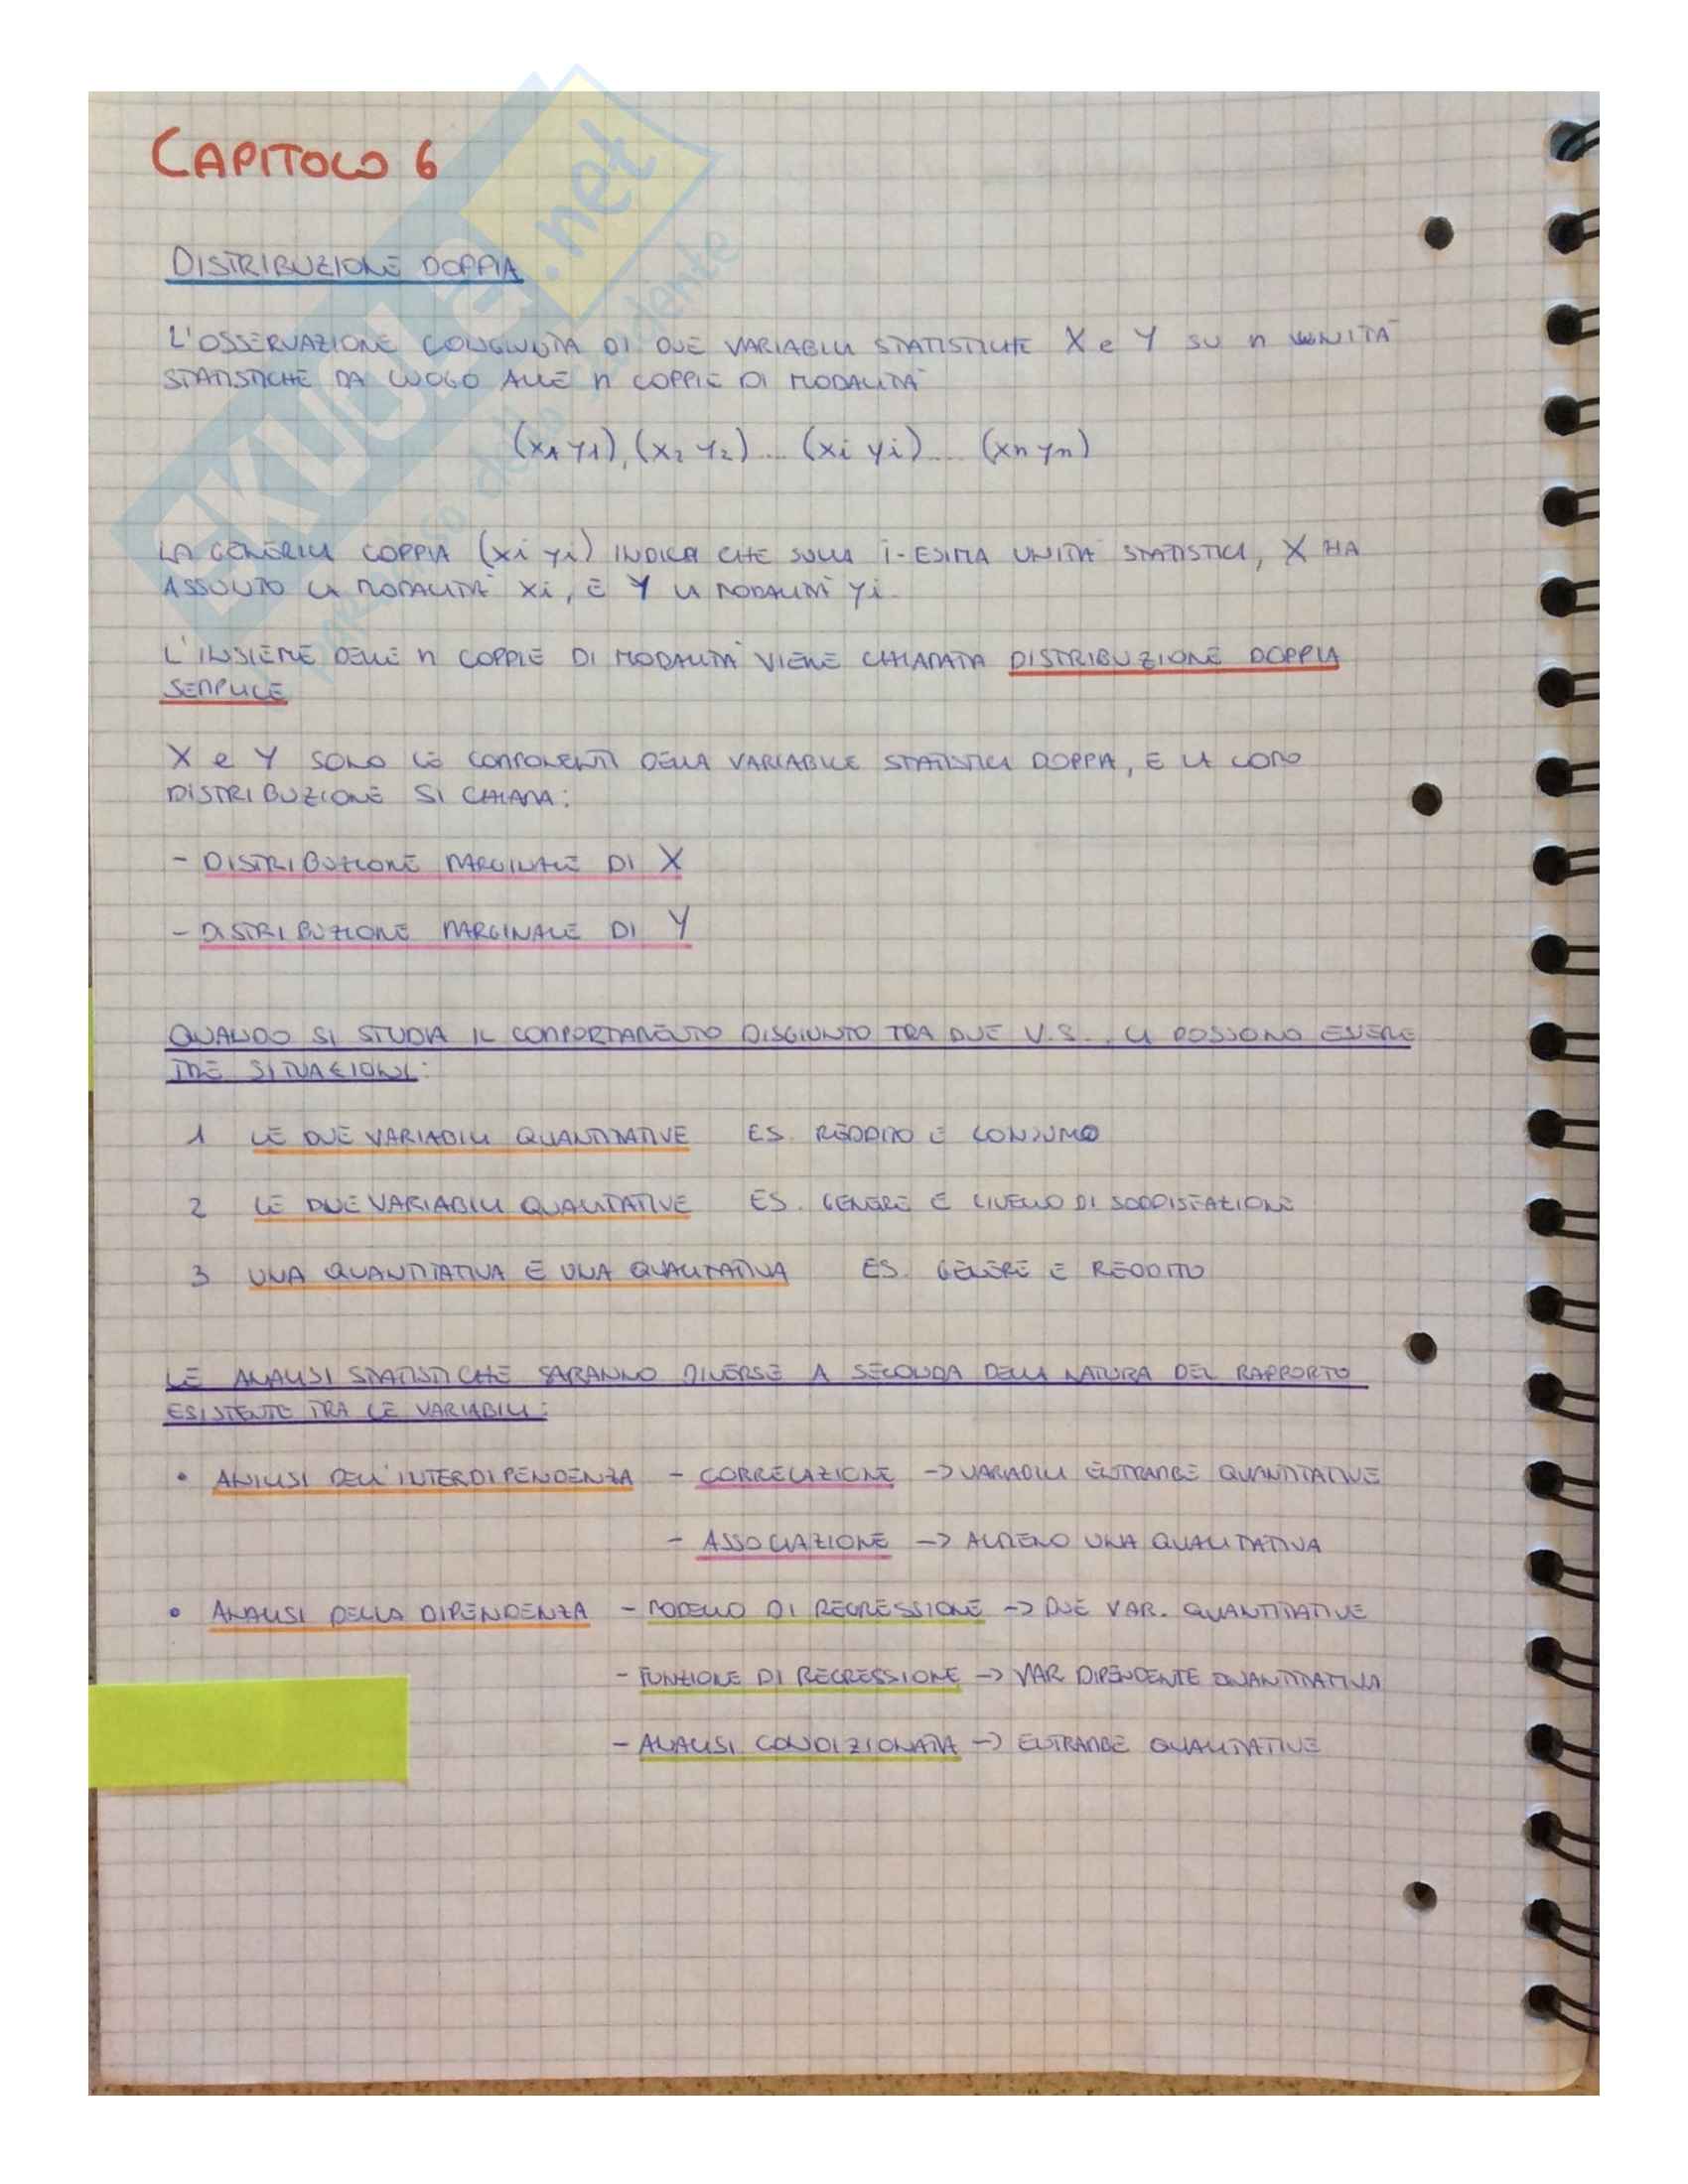 CAPITOLO 6
DISTRIBUZIONE DOPPIA
L'OSSERVAZIONE CONGIUNTA DI DUE VARIABILI STATISTICHE X e Y SU n UNITÀ
STATISTICHE DA LUOGO ALLE n COPPIE DI MODALITÀ
(x1 y1), (x2 y2)... (xi yi)... (xn yn)
LA GENERICA COPPIA (xi yi) INDICA CHE SULLA i-ESIMA UNITÀ STATISTICA, X HA
ASSUNTO LA MODALITÀ xi, E Y LA MODALITÀ yi.
L'INSIEME DELLE n COPPIE DI MODALITÀ VIENE CHIAMATA DISTRIBUZIONE DOPPIA
SEMPLICE
X e Y SONO LE COMPONENTI DELLA VARIABILE STATISTICA DOPPIA, E LA LORO
DISTRIBUZIONE SI CHIAMA:
- DISTRIBUZIONE MARGINALE DI X
- DISTRIBUZIONE MARGINALE DI Y
QUANDO SI STUDIA IL COMPORTAMENTO DISGIUNTO TRA DUE V.S., CI POSSONO ESSERE
TRE SITUAZIONI:
1 LE DUE VARIABILI QUANTITATIVE ES. REDDITO E CONSUMO
2 LE DUE VARIABILI QUALITATIVE ES. GENERE E LIVELLO DI SODDISFAZIONE
3 UNA QUANTITATIVA E UNA QUALITATIVA ES. GENERE E REDDITO
LE ANALISI STATISTICHE SARANNO DIVERSE A SECONDA DELLA NATURA DEL RAPPORTO
ESISTENTE TRA LE VARIABILI:
• ANALISI DELL'INTERDIPENDENZA - CORRELAZIONE -> VARIABILI ENTRAMBE QUANTITATIVE
- ASSOCIAZIONE -> ALMENO UNA QUALITATIVA
• ANALISI DELLA DIPENDENZA - MODELLO DI REGRESSIONE -> DUE VAR. QUANTITATIVE
- FUNZIONE DI REGRESSIONE -> VAR DIPENDENTE QUANTITATIVA
- ANALISI CONDIZIONATA -> ENTRAMBE QUALITATIVE
SKUOLA.net